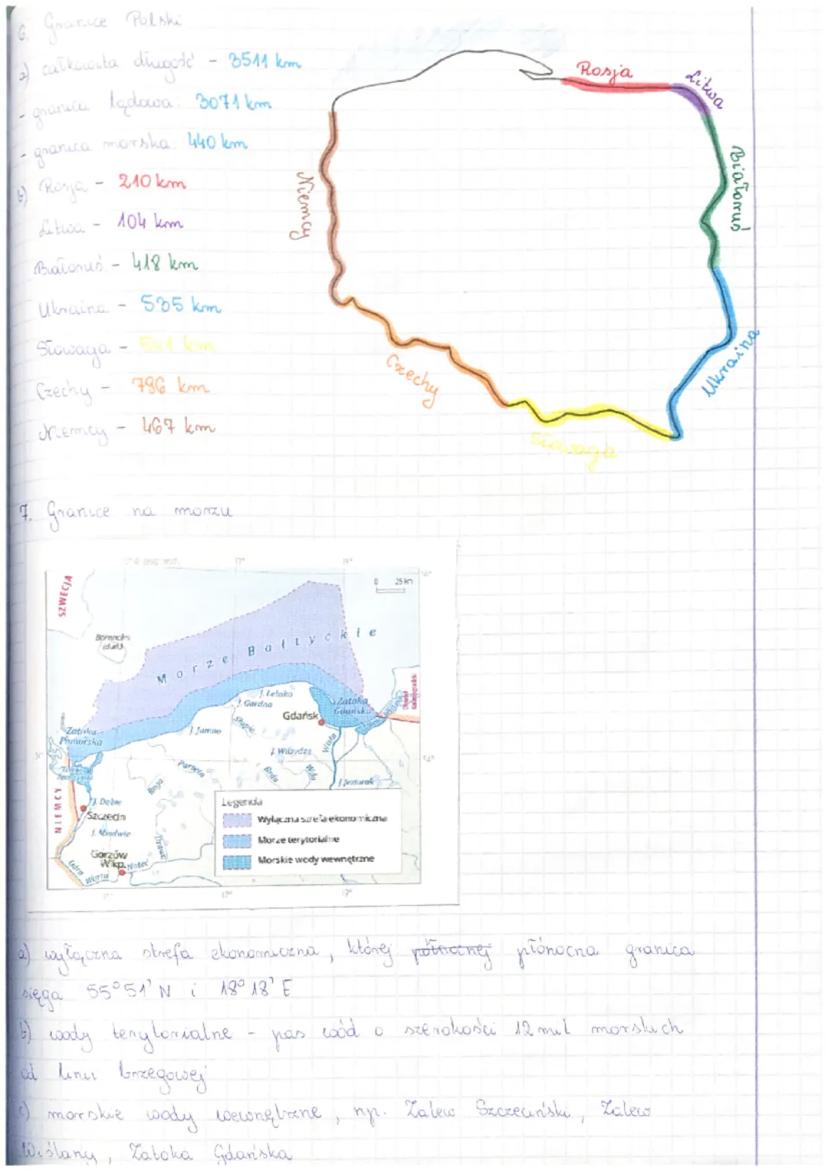 6. Granice Polski
a) całkowita długość - 3511 km
- granica lądowa: 3071 km
- granica morska: 440 km
b) Rosja - 210 km
Litwa - 104 km
Białoruś - 418 km
Ukraina - 535 km
Słowaga - 541 km
Czechy - 796 km
Niemcy - 467 km
Rosja
Litwa
Białoruś
Ukraina
Słowaga
Czechy
Niemcy
7. Granice na morzu
17°
19°
0 25 km
SZWECJA
Bornholm
Morze Bałtyckie
J. Łebsko
J. Gardno
Gdańsk
Zatoka
Gdańska
Zatoka
Pomorska
J. Jamno
Słupia
J. Wdzydze
Wisła
Parsęta
Rega
Brda
Wda
J. Jeziorak
NIEMCY
J. Dąbie
Szczecin
J. Miedwie
Gorzów
Wlkp.
Noteć
Warta
Odra
Drawa
Legenda
Wyłączna strefa ekonomiczna
Morze terytorialne
Morskie wody wewnętrzne
a) wyłączna strefa ekonomiczna, której północnej płónocna granica
sięga 55°51'N i 18°18'E
b) wody terytorialne - pas wód o szerokości 12 mil morskich
od linii brzegowej
c) morskie wody wewnętrzne, np. Zalew Szczeciński, Zalew
Wiślany, Zatoka Gdańska